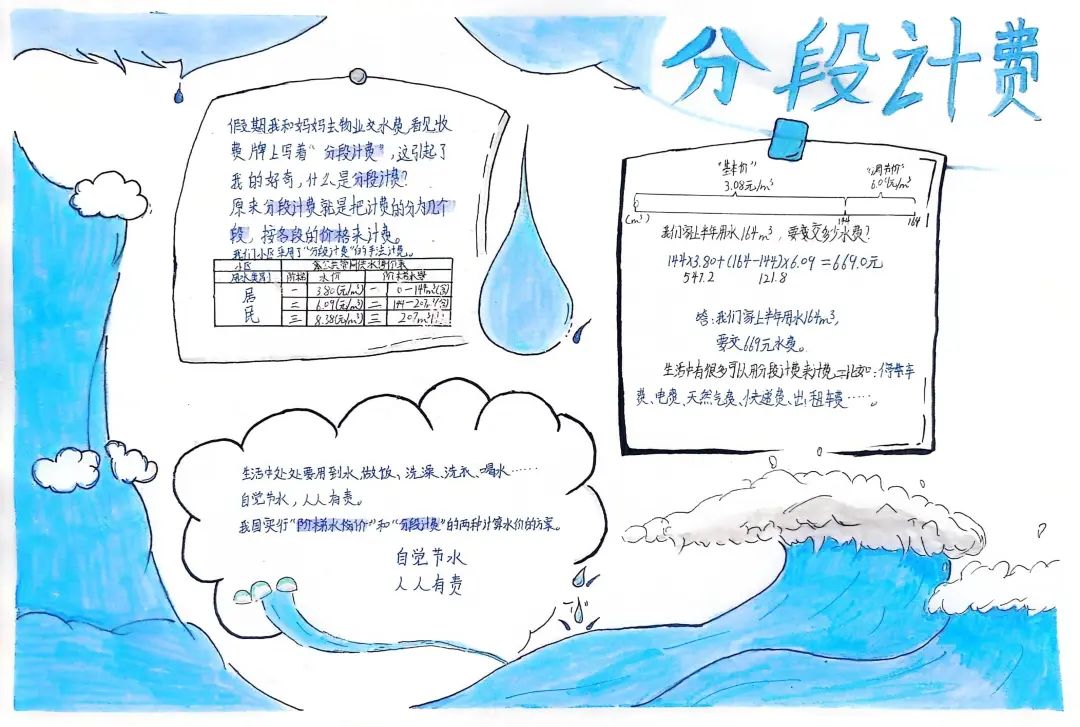 分段计费
假期我和妈妈去物业交水费,看见收
费牌上写着“分段计费”,这引起了
我的好奇,什么是分段计费?
原来分段计费就是把计费的分为几个
段,按各段的价格来计费。
我们小区采用了“分段计费”的手法计费。
小区
用水类别 阶梯 水价
居民 一 3.80(元/m³) 一 0-144m³(含)
二 6.09(元/m³) 二 144-207m³(含)
三 8.38(元/m³) 三 207m³
“基本价” “调节价”
3.08元/m³ 6.09元/m³
(m³) 144 164
我们家上半年用水164m³,要交多少水费?
144×3.80+(164-144)×6.09=669.0元
547.2 121.8
答:我们家上半年用水164m³,
要交669元水费。
生活中有很多可以用分段计费来计费,比如:停车
费、电费、天然气费、快递费、出租车费……。
生活中处处要用到水,做饭、洗澡、洗衣、喝水……
自觉节水,人人有责。
我国实行“阶梯水价”和“分段计费”的两种计算水价的方案。
自觉节水
人人有责